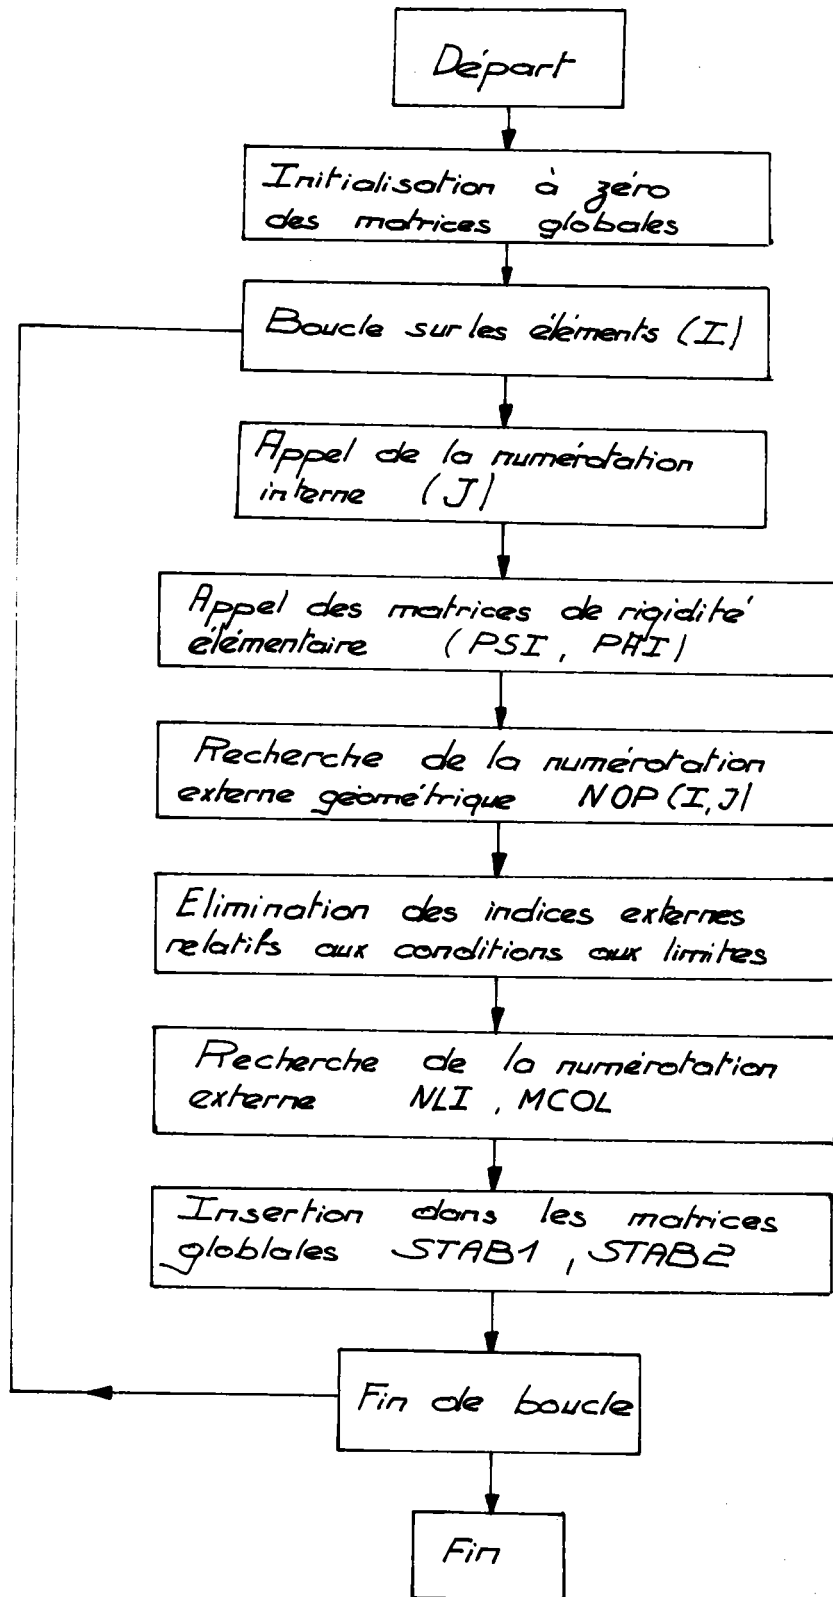 Départ
Initialisation à zéro
des matrices globales
Boucle sur les éléments (I)
Appel de la numérotation
interne (J)
Appel des matrices de rigidité
élémentaire (PSI, PHI)
Recherche de la numérotation
externe géométrique NOP(I,J)
Elimination des indices externes
relatifs aux conditions aux limites
Recherche de la numérotation
externe NLI, MCOL
Insertion dans les matrices
globlales STAB1, STAB2
Fin de boucle
Fin